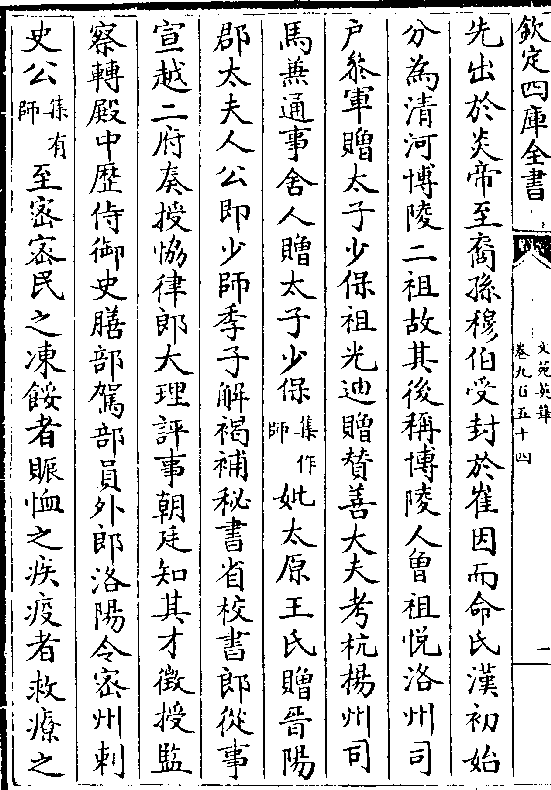 欽定四庫全書
文苑英華
卷九百五十四
一
先出於炎帝至裔孫穆伯受封於崔因而命氏漢初始
分為清河博陵二祖故其後稱博陵人曾祖悦洛州司
户叅軍贈太子少保祖光迪贈賛善大夫考杭揚州司
馬兼通事舍人贈太子少保集作師妣太原王氏贈晉陽
郡太夫人公即少師季子解褐補秘書省校書郎從事
宣越二府奏授恊律郎大理評事朝廷知其才徴授監
察轉殿中歴侍御史膳部駕部員外郎洛陽令宻州刺
史公集有師至宻宻民之凍餒者賑恤之疾疫者救療之